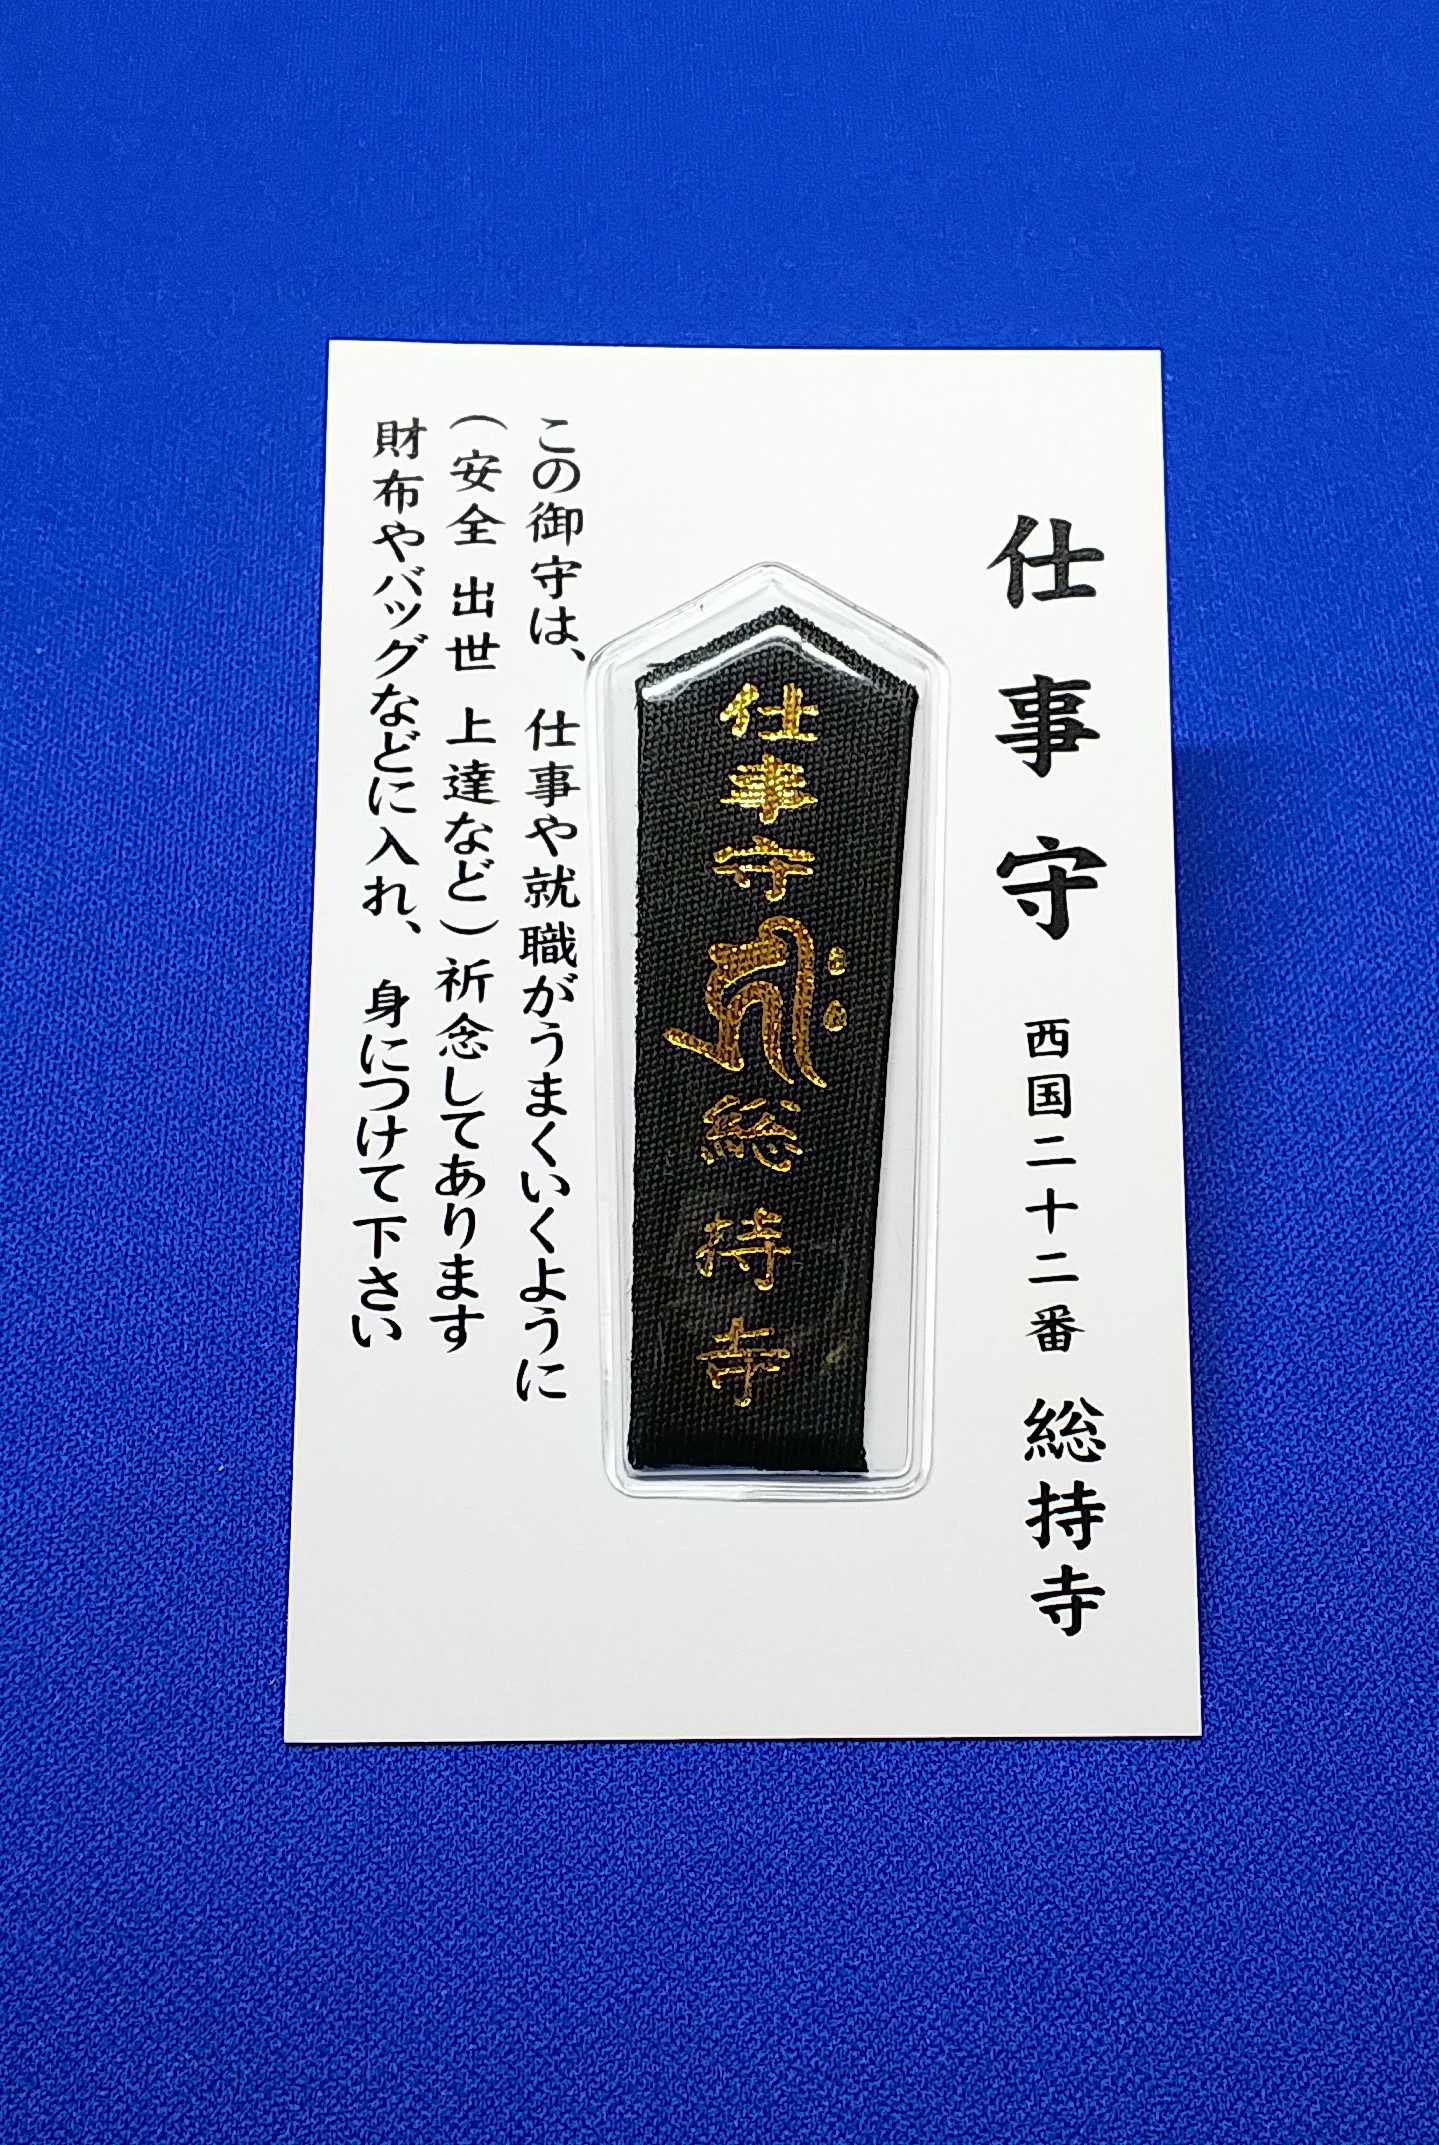 仕事守 西国二十二番 総持寺
仕事守 総持寺
この御守は、仕事や就職がうまくいくように
（安全 出世 上達など）祈念してあります
財布やバッグなどに入れ、身につけて下さい